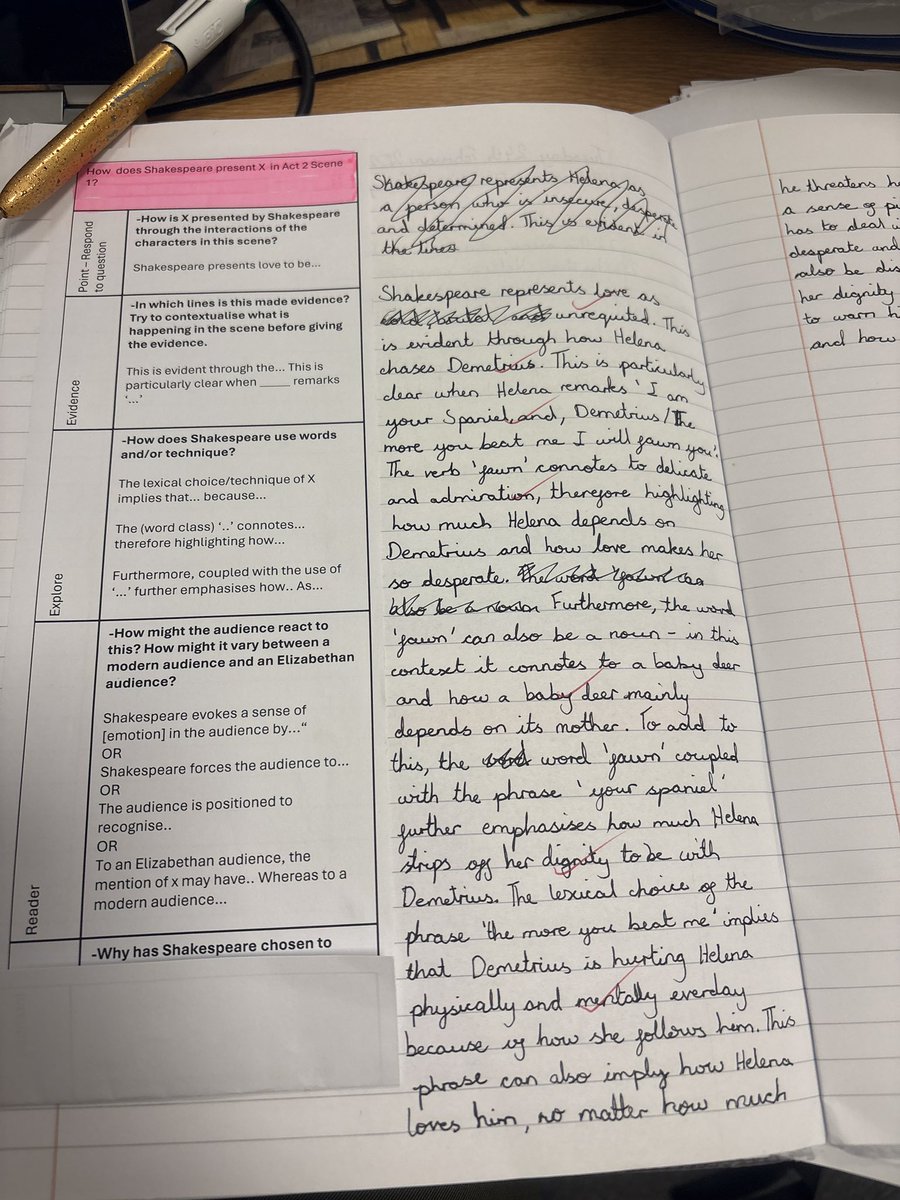 BIC
How does Shakespeare present X in Act 2 Scene
1?
Point – Respond
to question
-How is X presented by Shakespeare
through the interactions of the
characters in this scene?
Shakespeare presents love to be...
Evidence
-In which lines is this made evidence?
Try to contextualise what is
happening in the scene before giving
the evidence.
This is evident through the... This is
particularly clear when _____ remarks
‘...’
Explore
-How does Shakespeare use words
and/or technique?
The lexical choice/technique of X
implies that... because...
The (word class) ‘..’ connotes...
therefore highlighting how...
Furthermore, coupled with the use of
‘...’ further emphasises how.. As...
Reader
-How might the audience react to
this? How might it vary between a
modern audience and an Elizabethan
audience?
Shakespeare evokes a sense of
[emotion] in the audience by...“
OR
Shakespeare forces the audience to...
OR
The audience is positioned to
recognise..
OR
To an Elizabethan audience, the
mention of x may have.. Whereas to a
modern audience...
-Why has Shakespeare chosen to
Shakespeare represents Helena as
a person who is insecure, desperate
and determined. This is evident in
the lines
Shakespeare represents love as
unrequited. This
is evident through how Helena
chases Demetrius. This is particularly
clear when Helena remarks ' I am
your Spaniel, and, Demetrius/The
more you beat me I will fawn you'.
The verb 'fawn' connotes to delicate
and admiration, therefore highlighting
how much Helena depends on
Demetrius and how love makes her
so desperate. The word 'fawn' can
also be a noun Furthermore, the word
'fawn' can also be a noun - in this
context it connotes to a baby deer
and how a baby deer mainly
depends on its mother. To add to
this, the word 'fawn' coupled
with the phrase 'your spaniel'
further emphasises how much Helena
strips off her dignity to be with
Demetrius. The lexical choice of the
phrase 'the more you beat me' implies
that Demetrius is hurting Helena
physically and mentally everday
because of how she follows him. This
phrase can also imply how Helena
loves him, no matter how much
he threatens
a sense of
has to deal
desperate and
also be
her dignity
to warn
and how